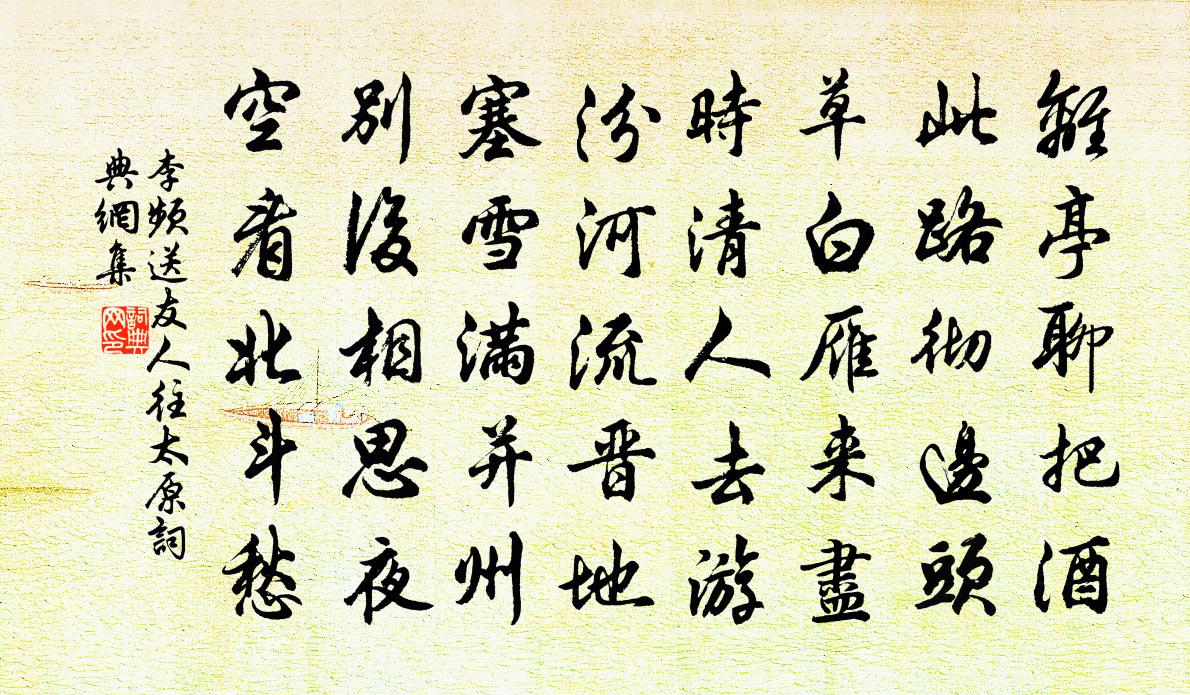 離亭聊把酒
此路徹邊頭
草白雁来盡
時清人去游
汾河流晋地
塞雪满并州
别後相思夜
空看北斗愁
李頻送友人往太原詞
典網集
詞典
网印